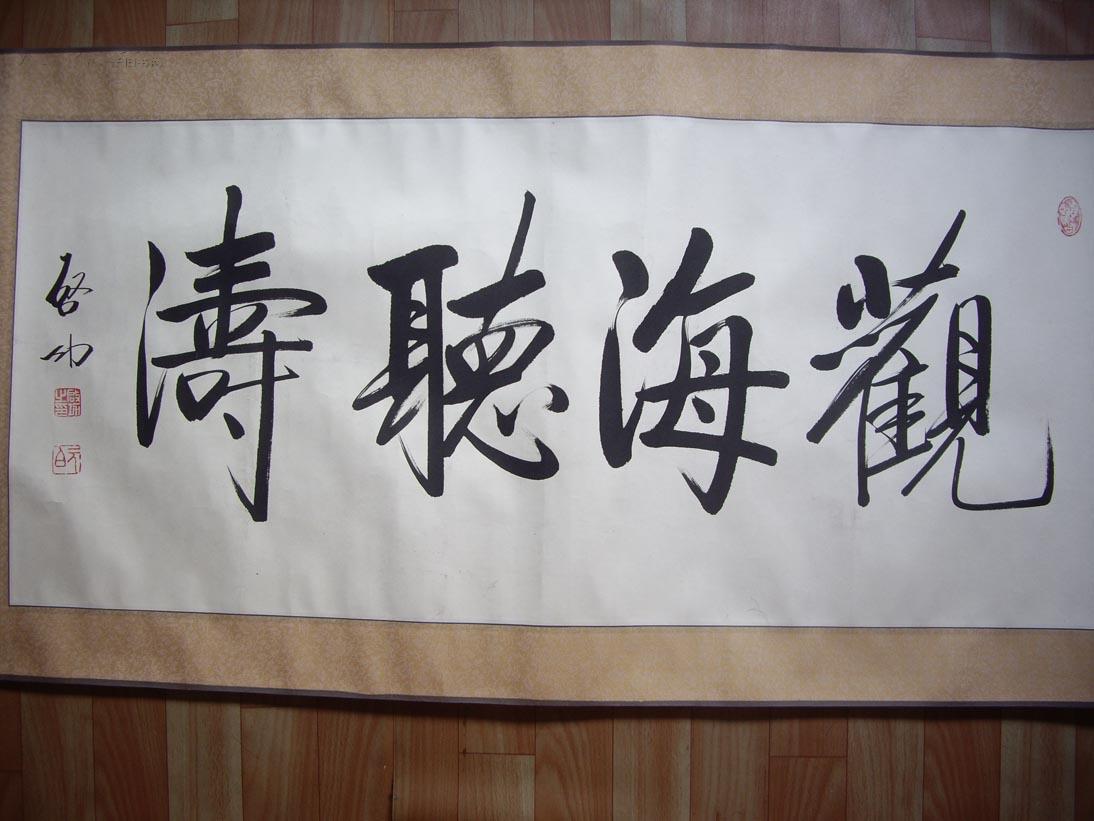 觀海聽濤
啓功